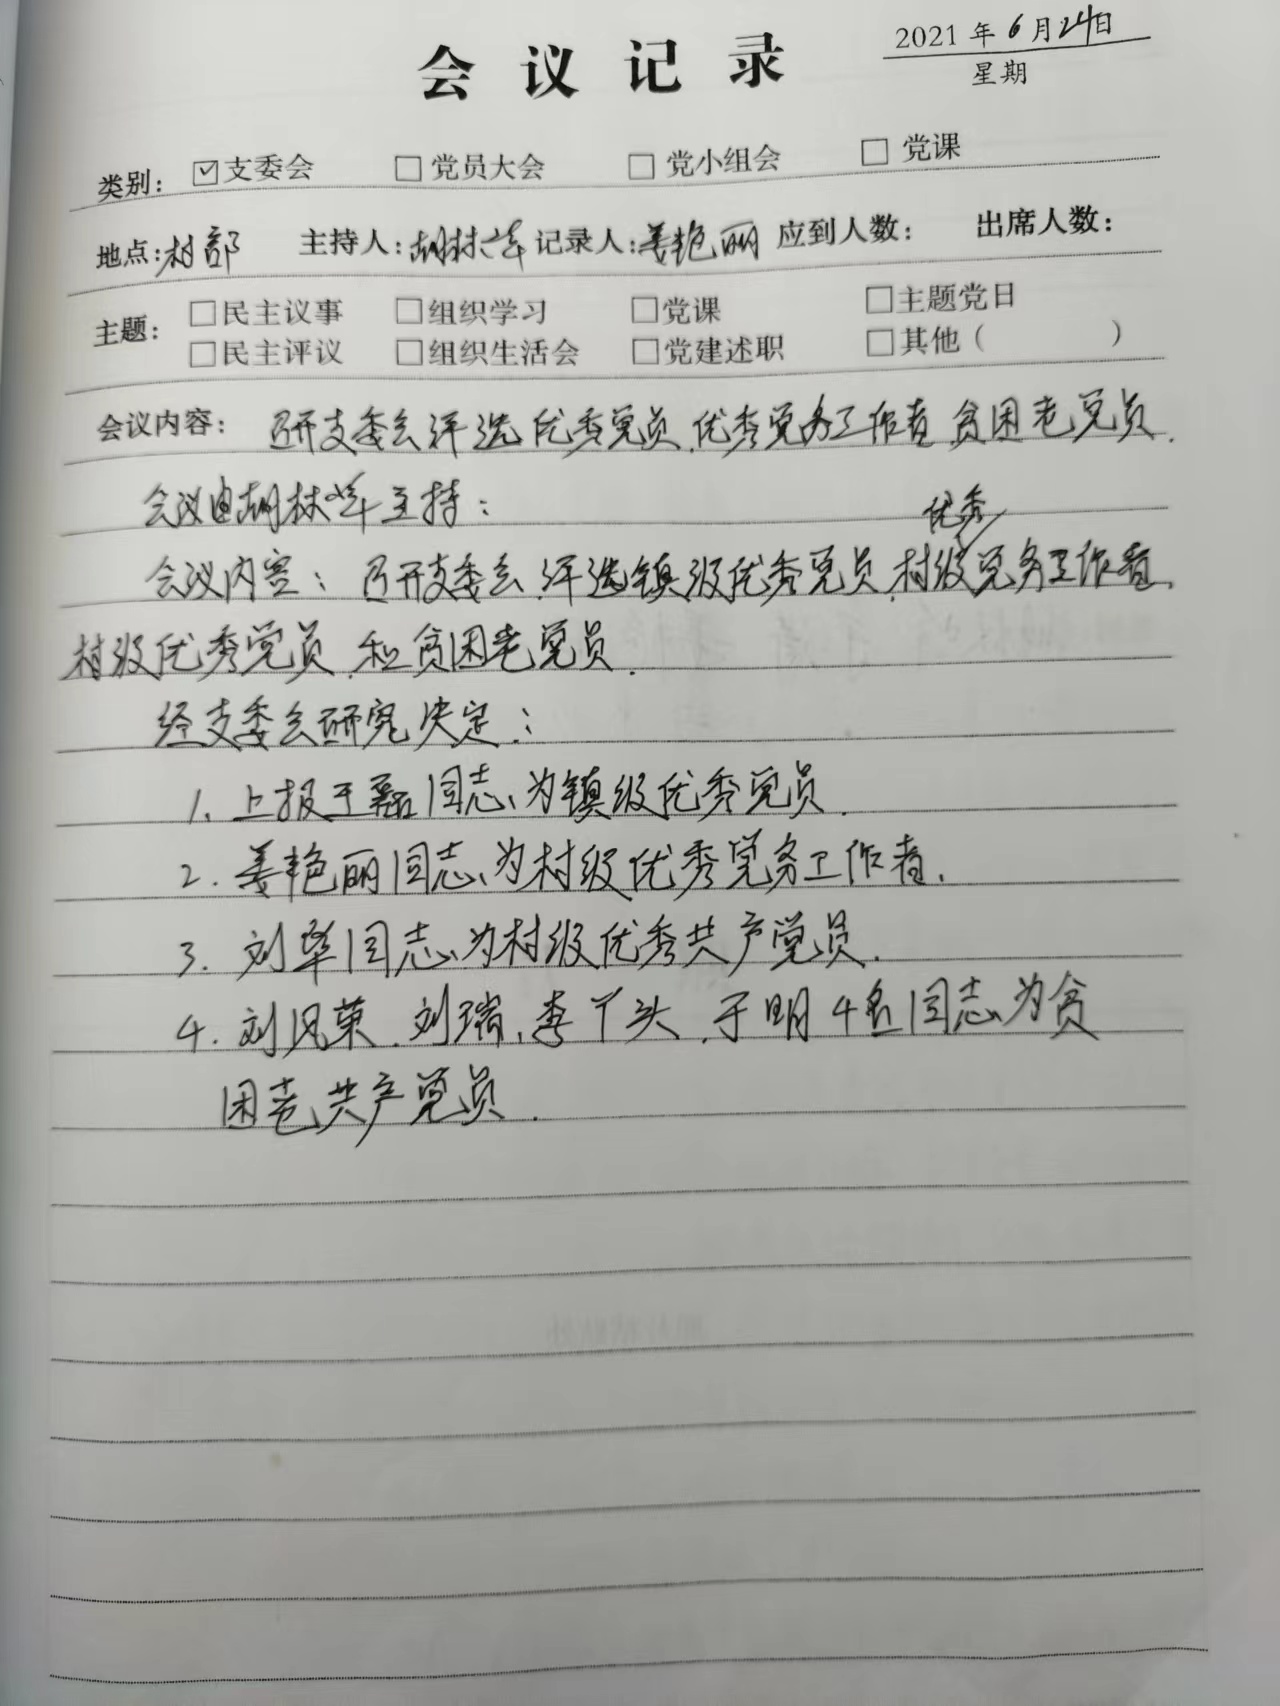 会议记录
2021年6月24日
星期
类别: ☑支委会 □党员大会 □党小组会 □党课
地点:村部 主持人:胡林 记录人:姜艳丽 应到人数: 出席人数:
主题: □民主议事 □组织学习 □党课 □主题党日
□民主评议 □组织生活会 □党建述职 □其他( )
会议内容: 召开支委会评选优秀党员、优秀党务工作者、贫困老党员.
会议由胡林主持:
优秀
会议内容: 召开支委会、评选镇级优秀党员、村级党务工作者、
村级优秀党员、和贫困老党员.
经支委会研究决定:
1、上报于同志、为镇级优秀党员.
2. 姜艳丽同志、为村级优秀党务工作者.
3. 刘华同志、为村级优秀共产党员.
4. 刘凤荣、刘瑞、李丫头、于明4名同志、为贫
困老共产党员.